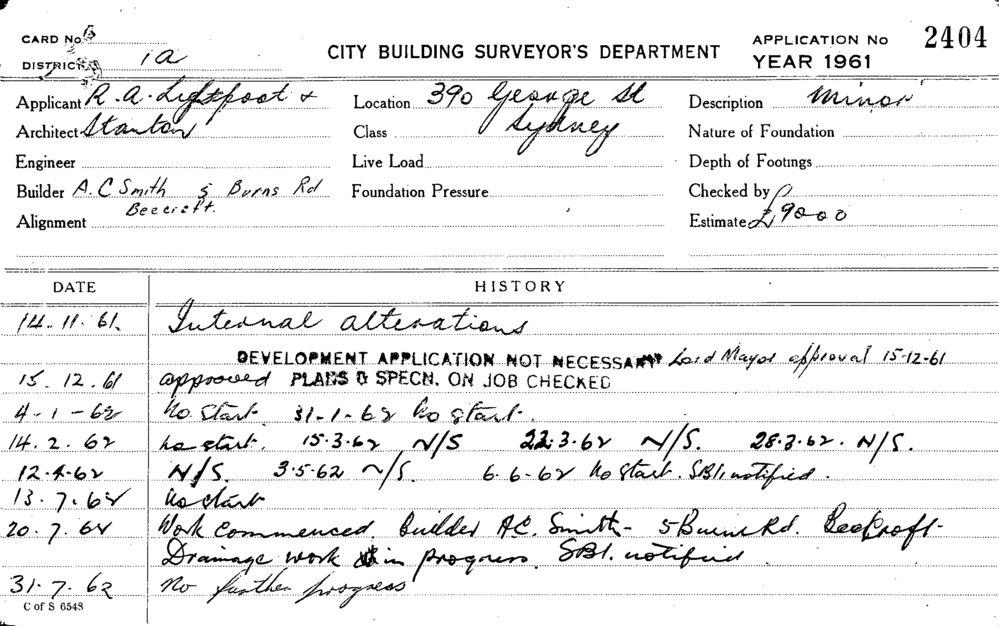 CARD No.
DISTRICT 1a
CITY BUILDING SURVEYOR'S DEPARTMENT
APPLICATION No 2404
YEAR 1961
Applicant R. A. Lightfoot &
Architect Stanton
Engineer
Builder A. C Smith 5 Burns Rd
Beecroft.
Alignment
Location 390 George St
Sydney
Class
Live Load
Foundation Pressure
Description Minor
Nature of Foundation
Depth of Footings
Checked by
Estimate £9000
DATE HISTORY
14.11.61. Internal alterations
DEVELOPMENT APPLICATION NOT NECESSARY Lord Mayor approval 15-12-61
15.12.61 approved PLANS & SPECN. ON JOB CHECKED
4-1-62 No start 31-1-62 No start.
14.2.62 No start. 15.3.62 N/S 22.3.62 N/S. 28.3.62. N/S.
12.4.62 N/S. 3.5.62 N/S. 6.6.62 No start. SBI. notified.
13.7.62 No start
20.7.62 Work commenced. Builder A.C. Smith - 5 Burns Rd. Beecroft-
Drainage work in progress. SBI. notified
31.7.62 No further progress
C of S 6548